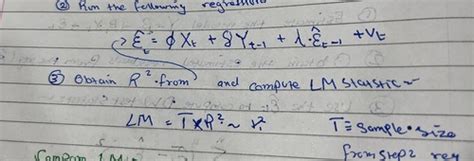 ② Run the following regression
ε̂_t = φX_t + δY_{t-1} + λ·ε̂_{t-1} + V_t
③ Obtain R² from and compute LM statistic
LM = T×R² ~ χ²₁ T ≡ sample size
from step2 reg
Compare LM